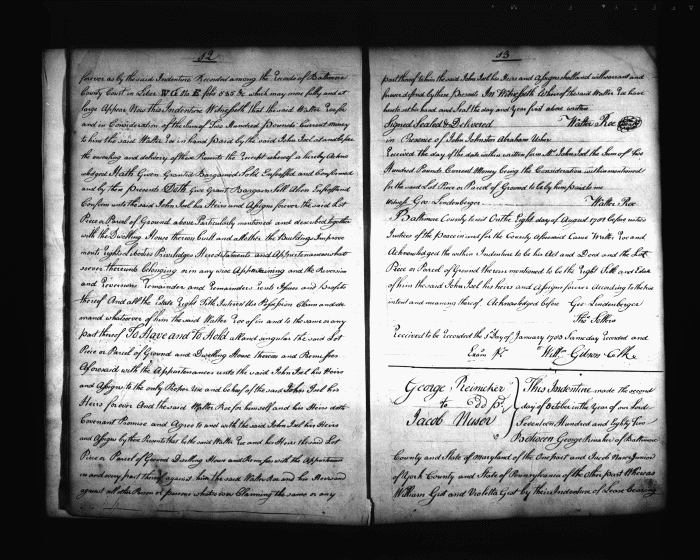 12
forever as by the said Indenture Recorded among the Records of Baltimore
County Court in Liber W G No E folio 535 &c which may more fully and at
large Appear Now this Indenture Witnesseth that the said Walter Roe for
and in Consideration of the sum of Two Hundred Pounds Current money
to him the said Walter Roe in hand paid by the said John Joel at and before
the ensealing and delivery of these Presents the Receipt whereof is hereby Acknow
ledged Hath Given Granted Bargained Sold Enfeoffed and Confirmed
and by these Presents Doth Give Grant Bargain Sell Alien Enfeoff and
Confirm unto the said John Joel his Heirs and Assigns forever the said Lot
Piece or Parcel of Ground above Particularly mentioned and described together
with the Dwelling House thereon built and all other the Buildings Improve
ments Rights Priviledges Hereditaments and Appurtenances what
soever thereunto Belonging or in any wise Appertaining and the Reversion
and Reversions Remainder and Remainders Rents Issues and Profits
thereof And all the Estate Right Title Interest Use Possession Claim and de
mand whatsoever of him the said Walter Roe of in and to the same or any
part thereof To Have and To Hold all and singular the said Lot
Piece or Parcel of Ground and Dwelling House thereon and Premises
Aforesaid with the Appurtenances unto the said John Joel his Heirs
and Assigns to the only Proper Use and behoof of the said John Joel his
Heirs forever And the said Walter Roe for himself and his Heirs doth
Covenant Promise and Agree to and with the said John Joel his Heirs
and Assigns by these Presents that he the said Walter Roe and his Heirs the said Lot
Piece or Parcel of Ground Dwelling House and Premises with the Appurtenan
and every part thereof against him the said Walter Roe and his Heirs and
against all other Person or persons whatsoever Claiming the same or any
13
part thereof to him the said John Joel his Heirs and Assigns shall and will warrant and
forever defend by these Presents In Witness whereof the said Walter Roe have
hereto set his hand and Seal the day and Year first above written
Signed Sealed & Delivered Walter Roe
in Presence of John Johnston Abraham Usher
Received the day of the date within written from Mr John Joel the Sum of Two
Hundred Pounds Current Money being the Consideration within mentioned
for the said Lot Piece or Parcel of Ground to be by him paid to me
Witness Geo: Lindenberger Walter Roe
Baltimore County to wit On the Eight day of August 1782 before us two
Justices of the Peace in and for the County Aforesaid Came Walter Roe and
Acknowledged the within Indenture to be his Act and Deed and the Lot
Piece or Parcel of Ground therein mentioned to be the Right Title and Estate
of him the said John Joel his heirs and Assigns forever According to the true
intent and meaning thereof Acknowledged before Geo: Lindenberger
Thos Sollers
Received to be recorded the Day of January 1783 Same day recorded and
Exam Pr Willm Gibson Clk
George Reineker
to
Jacob Nuser
This Indenture made the second
day of October in the Year of our Lord
Seventeen Hundred and Eighty Two
Between George Reineker of Baltimore
County and State of Maryland of the One part and Jacob Nuser Junior
of York County and State of Pennsylvania of the Other part Whereas
William Gist and Violetta Gist by their Indenture of Lease bearing